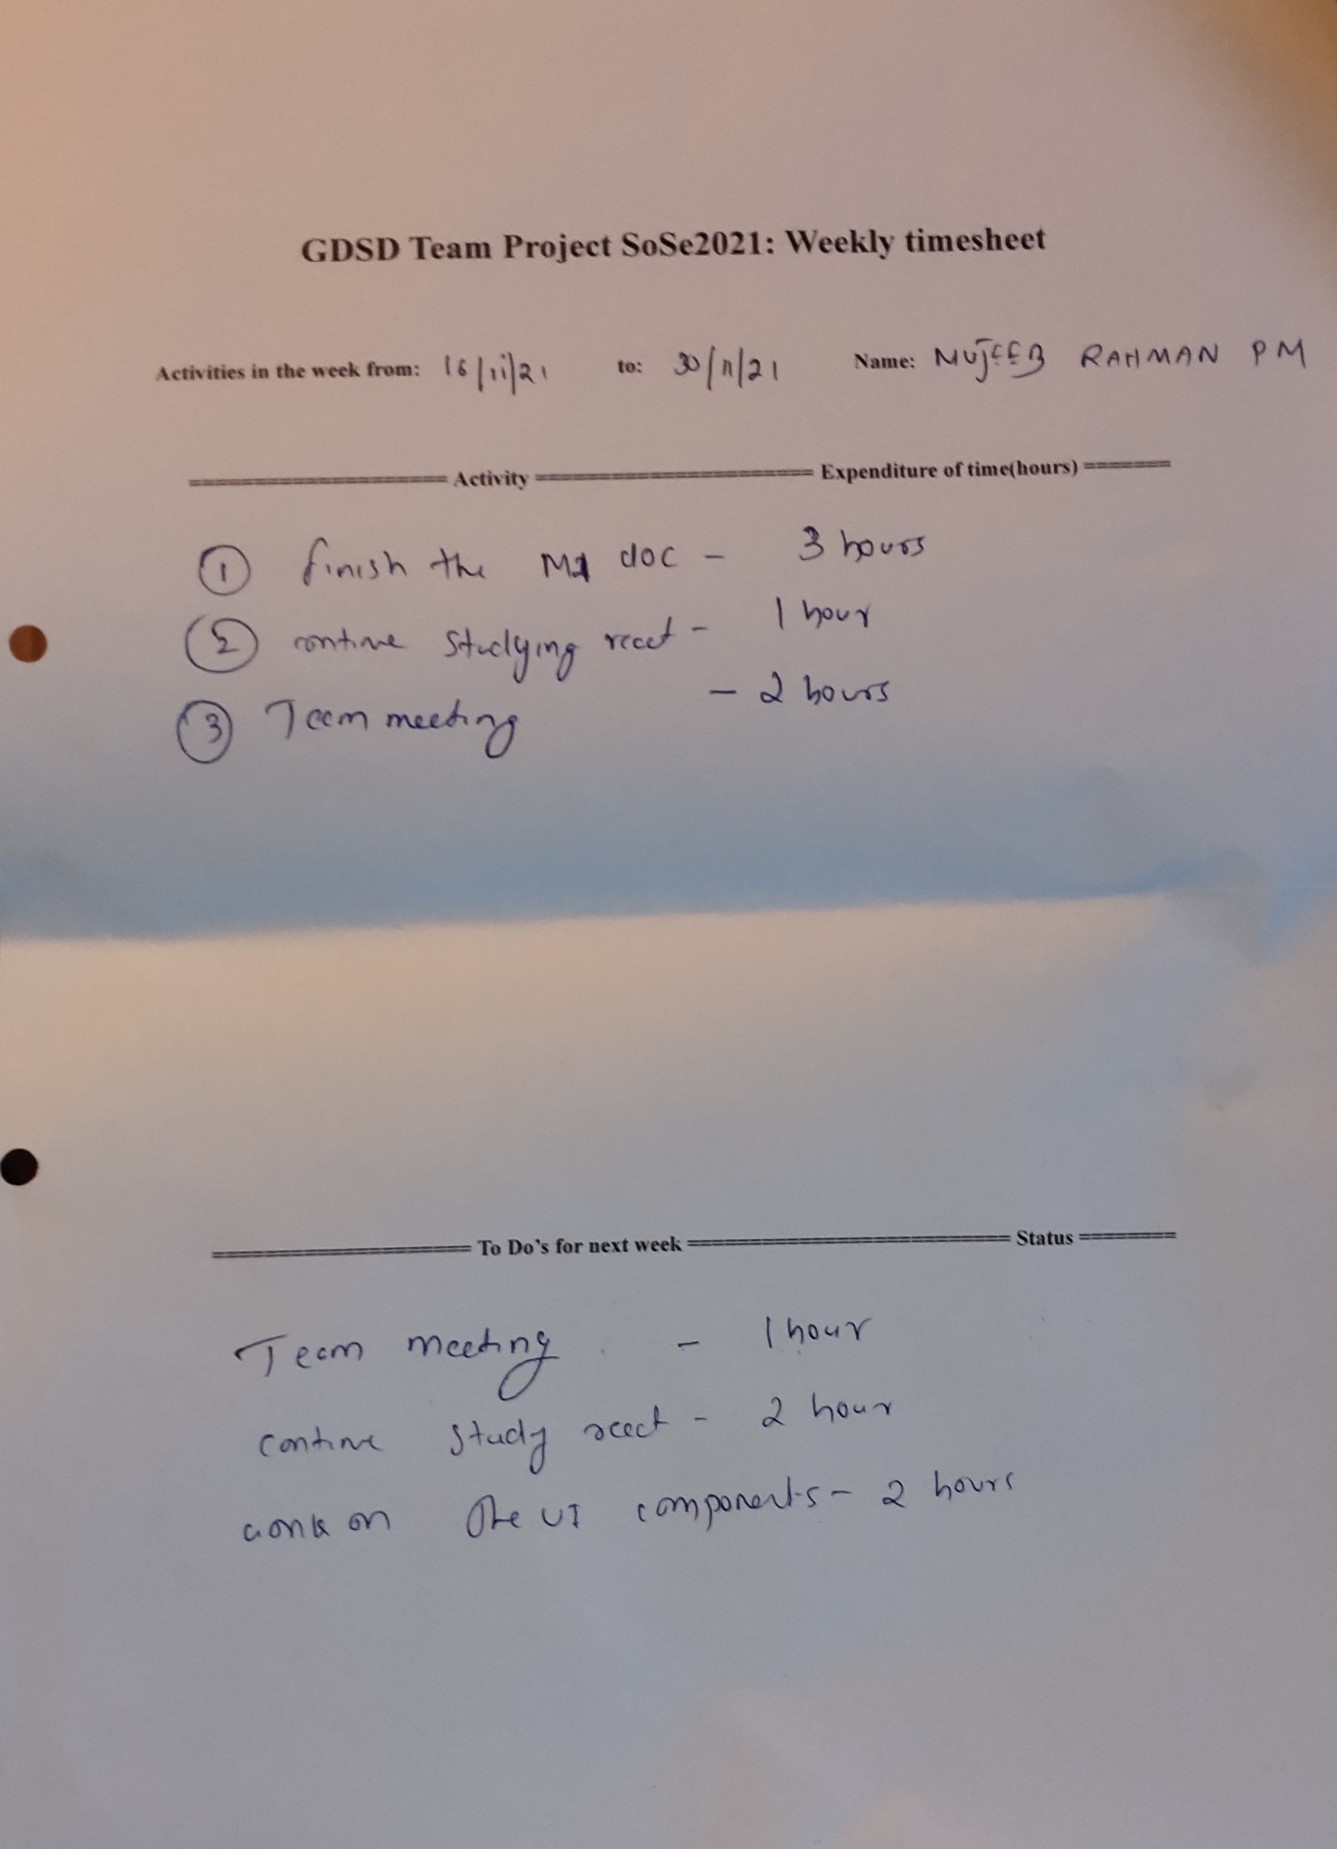 GDSD Team Project SoSe2021: Weekly timesheet
Activities in the week from: 16/11/21 to: 30/11/21 Name: MUJEEB RAHMAN PM
==================== Activity ====================== Expenditure of time(hours) =======
① finish the M1 doc - 3 hours
② continue Studying react - 1 hour
③ Team meeting - 2 hours
==================== To Do's for next week ========================= Status ========
Team meeting - 1 hour
continue study react - 2 hour
work on the UI components - 2 hours